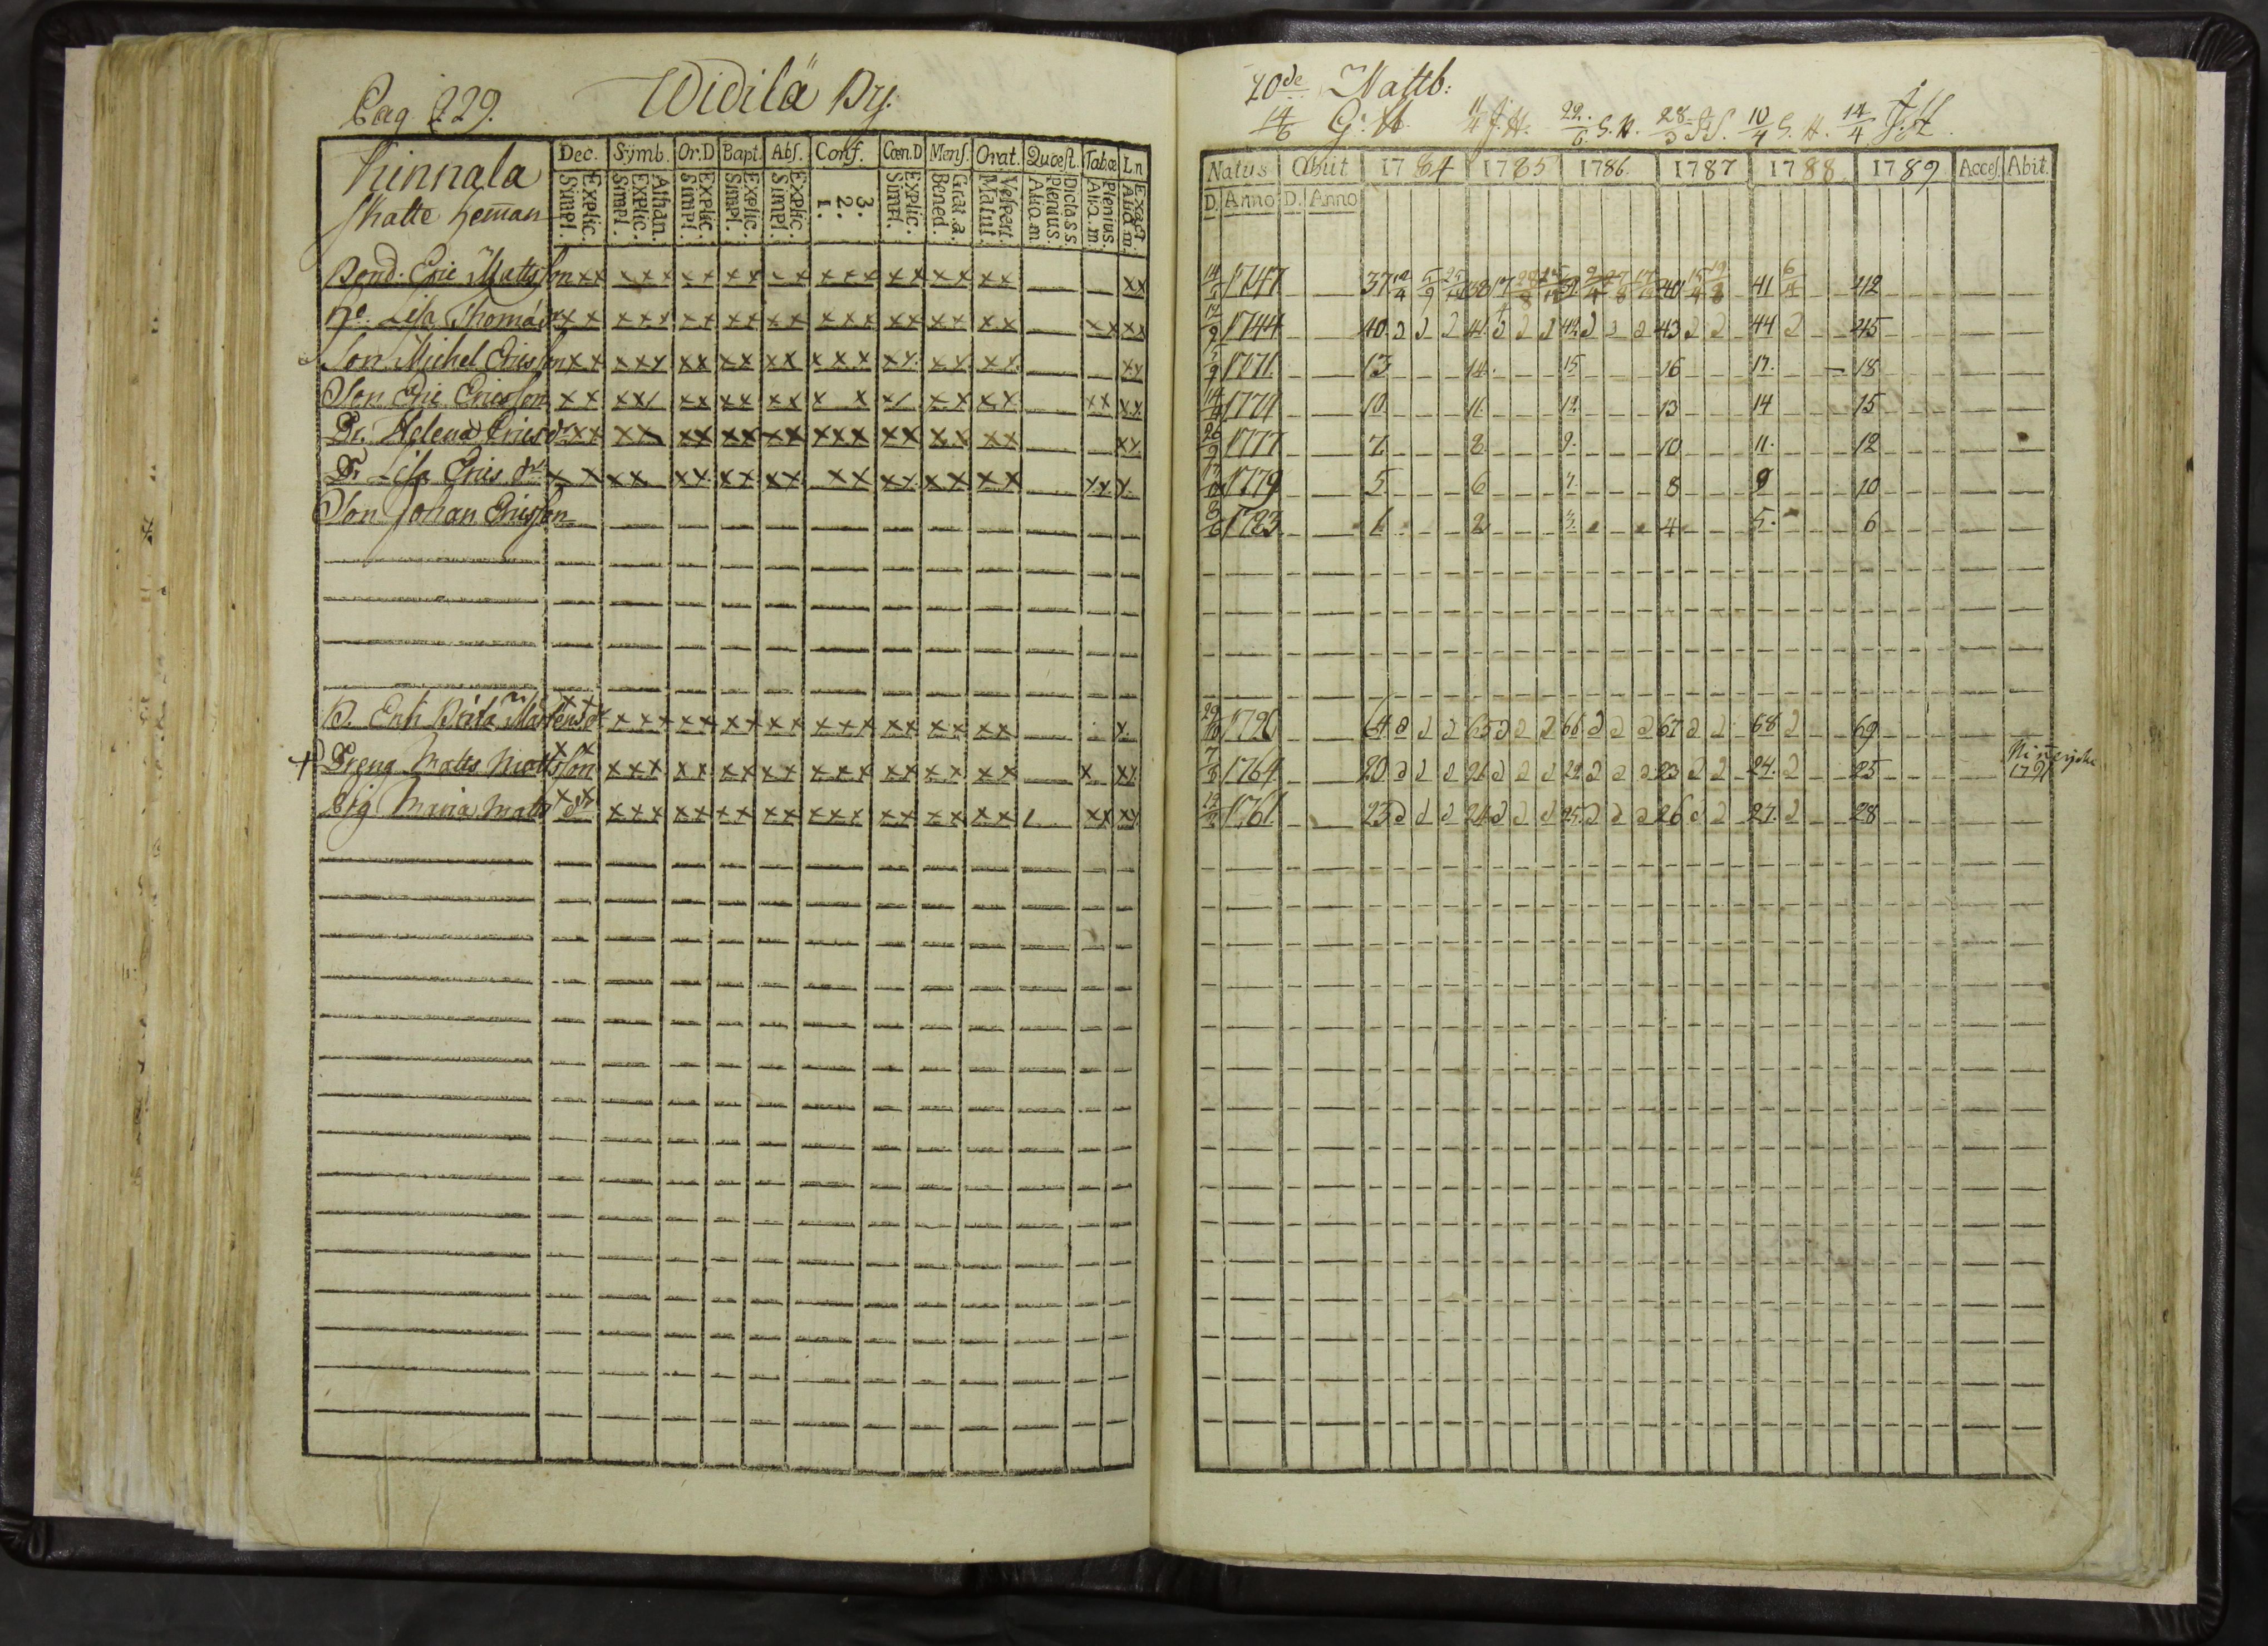 Pag. 229. Widilä By.
Dec. Symb. Or.D Bapt. Abs. Conf. Cœn.D Mens. Orat. Quæst. Tabœ L.n
Kinnala
skatte heman
Explic. Simpl. Athan. Explic. Simpl. Explic. Simpl. Explic. Simpl. Explic. Simpl. 3. 2. 1. Explic. Simpl. Grat. a. Bened. Vespert. Matut. Dicta s s Plenius. Aliq. m. Plenius. Aliq. m. Exact. Aliq. m.
Bond. Eric Mattsson xx xxx xx xx xx xxx xx xx xx xx
Ho. Lisa Thomasdr xx xxx xx xx xx xxx xx xx xx xx xx
Son Michel Ericsson xx xxx xx xx xx xxx xx xx xx xx
Son Eric Ericsson xx xxx xx xx xx x x xx xx xx xx xx
Dr. Helena Ericsdr xx xx xx xx xx xxx xx xx xx xx
Dr Lisa Erics dr x x xx xx xx xx xx xx xx xx xx x
Son Johan Ericsson
B. Enk. Brita Mårtensdr xx xxx xx xx xx xxx xx xx xx x
+ Dreng Matts Mattsson xx xxx xx xx xx xxx xx xx xx x xx
Pig. Maria Matts dr xx xxx xx xx xx xxx xx xx xx xx xx
40de Mattb:
14/6 G. H. 11/4 J. H. 22/6 G. H. 28/3 10/4 G. H. 14/4 J. H.
Natus Obiit 1784 1785 1786 1787 1788 1789 Acces. Abit.
D. Anno D. Anno
1747 37 38 40 41 6/4 42
1744 40 2 2 2 41 2 2 2 42 2 2 2 43 2 2 44 2 45
1771 13 14 15 16 17. 18
1774 10 11 12 13 14 15
1777 7 8 9. 10 11. 12
1779 5 6 7 8 9 10
8/6 1783 1 2 3 4 5. 6
1720 64 2 2 2 65 2 2 2 66 2 2 2 67 2 2 68 2 69
7/8 1764 20 2 2 2 21 2 2 2 22 2 2 2 23 2 2 24. 2 25 1791
1761 23 2 2 2 24 2 2 2 25. 2 2 2 26 2 2 27. 2 28